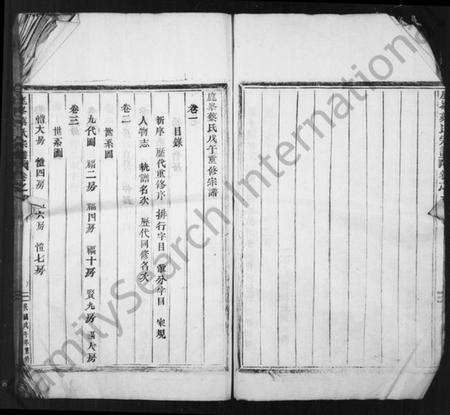 鹿峯蔡氏戊午重修宗譜
目錄
卷一
新序 歷代重修序 排行字目 葷分字目 家規
人物志 執譜名次 歷代同修名次
卷二
世系圖
九代圖 福二房 福四房 福十房 賢九房 八房
卷三
世系圖
禮大房 禮四房 六房 禮七房
FamilySearch International